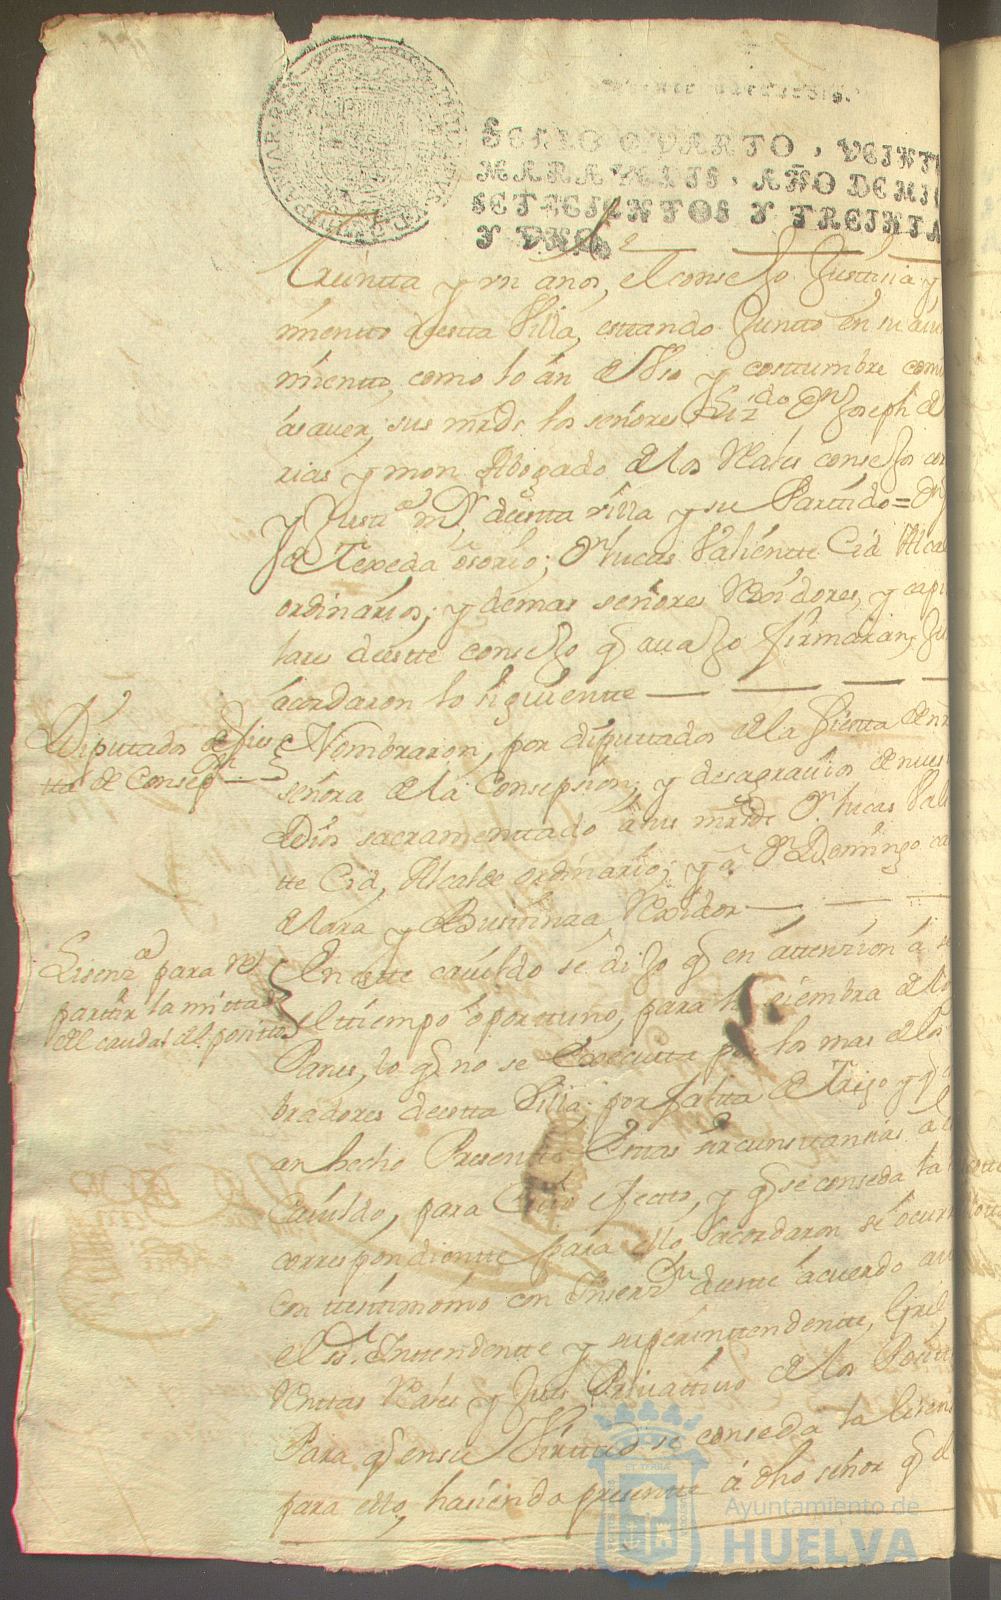 SELLO QVARTO, VEINT
MARAVEDIS, AÑO DE MI
SETECIENTOS Y TREINTA
Y VNO
treintta y un anos, el consejo Justicia y
miento de estta Villa, esttando Juntto en su
miento, como lo án de Vso y costtumbre
á sauer, sus mrds los señores Lizdo Dn Joseph de
rias y mon Abogado de los Rales consejos
y Justa mr destta villa y su Parttido = Dn
de Texeda osorio; Dn lucas Valientte Cid Alcal
ordinarios; y demas señores Rexidores, y capi
lares deestte consejo q auajo firmaran,
acordaron lo siguientte
Diputtados de fies
tta de Consepn
Nombraron, por diputtados de la fiestta de
señora de la Consepsion; y desagrauios de nues
Dios sacramenttado á sus mrds Dn lucas Vali
tte Cid, Alcalde ordinario; y á Dn Domingo
de lara y Busttinza Rexidor
Lisenza para re
parttir la mittad
del caudal del positto
En estte cauildo se dijo q en áttension á
el ttiempo oporttuno, para la siembra de los
Panes, lo q no se Execcutta por los mas de los
bradores de estta Villa; por faltta de Trigo y q
an hecho Presentte Esttas sircunsttansias á
Cauildo, para Cuio efectto, y q se conseda la
correspondientte para ello acordaron se ocurr
con ttesttimonio con Insern destte acuerdo
el sr Inttendentte y superinttendentte, Grl
Renttas Rales y Jues Priuattiuo de los Positt
Para q en su Virttud se conseda la lisens
para ello, hasiendo presentte á dho señor q
Ayuntamiento de
HUELVA